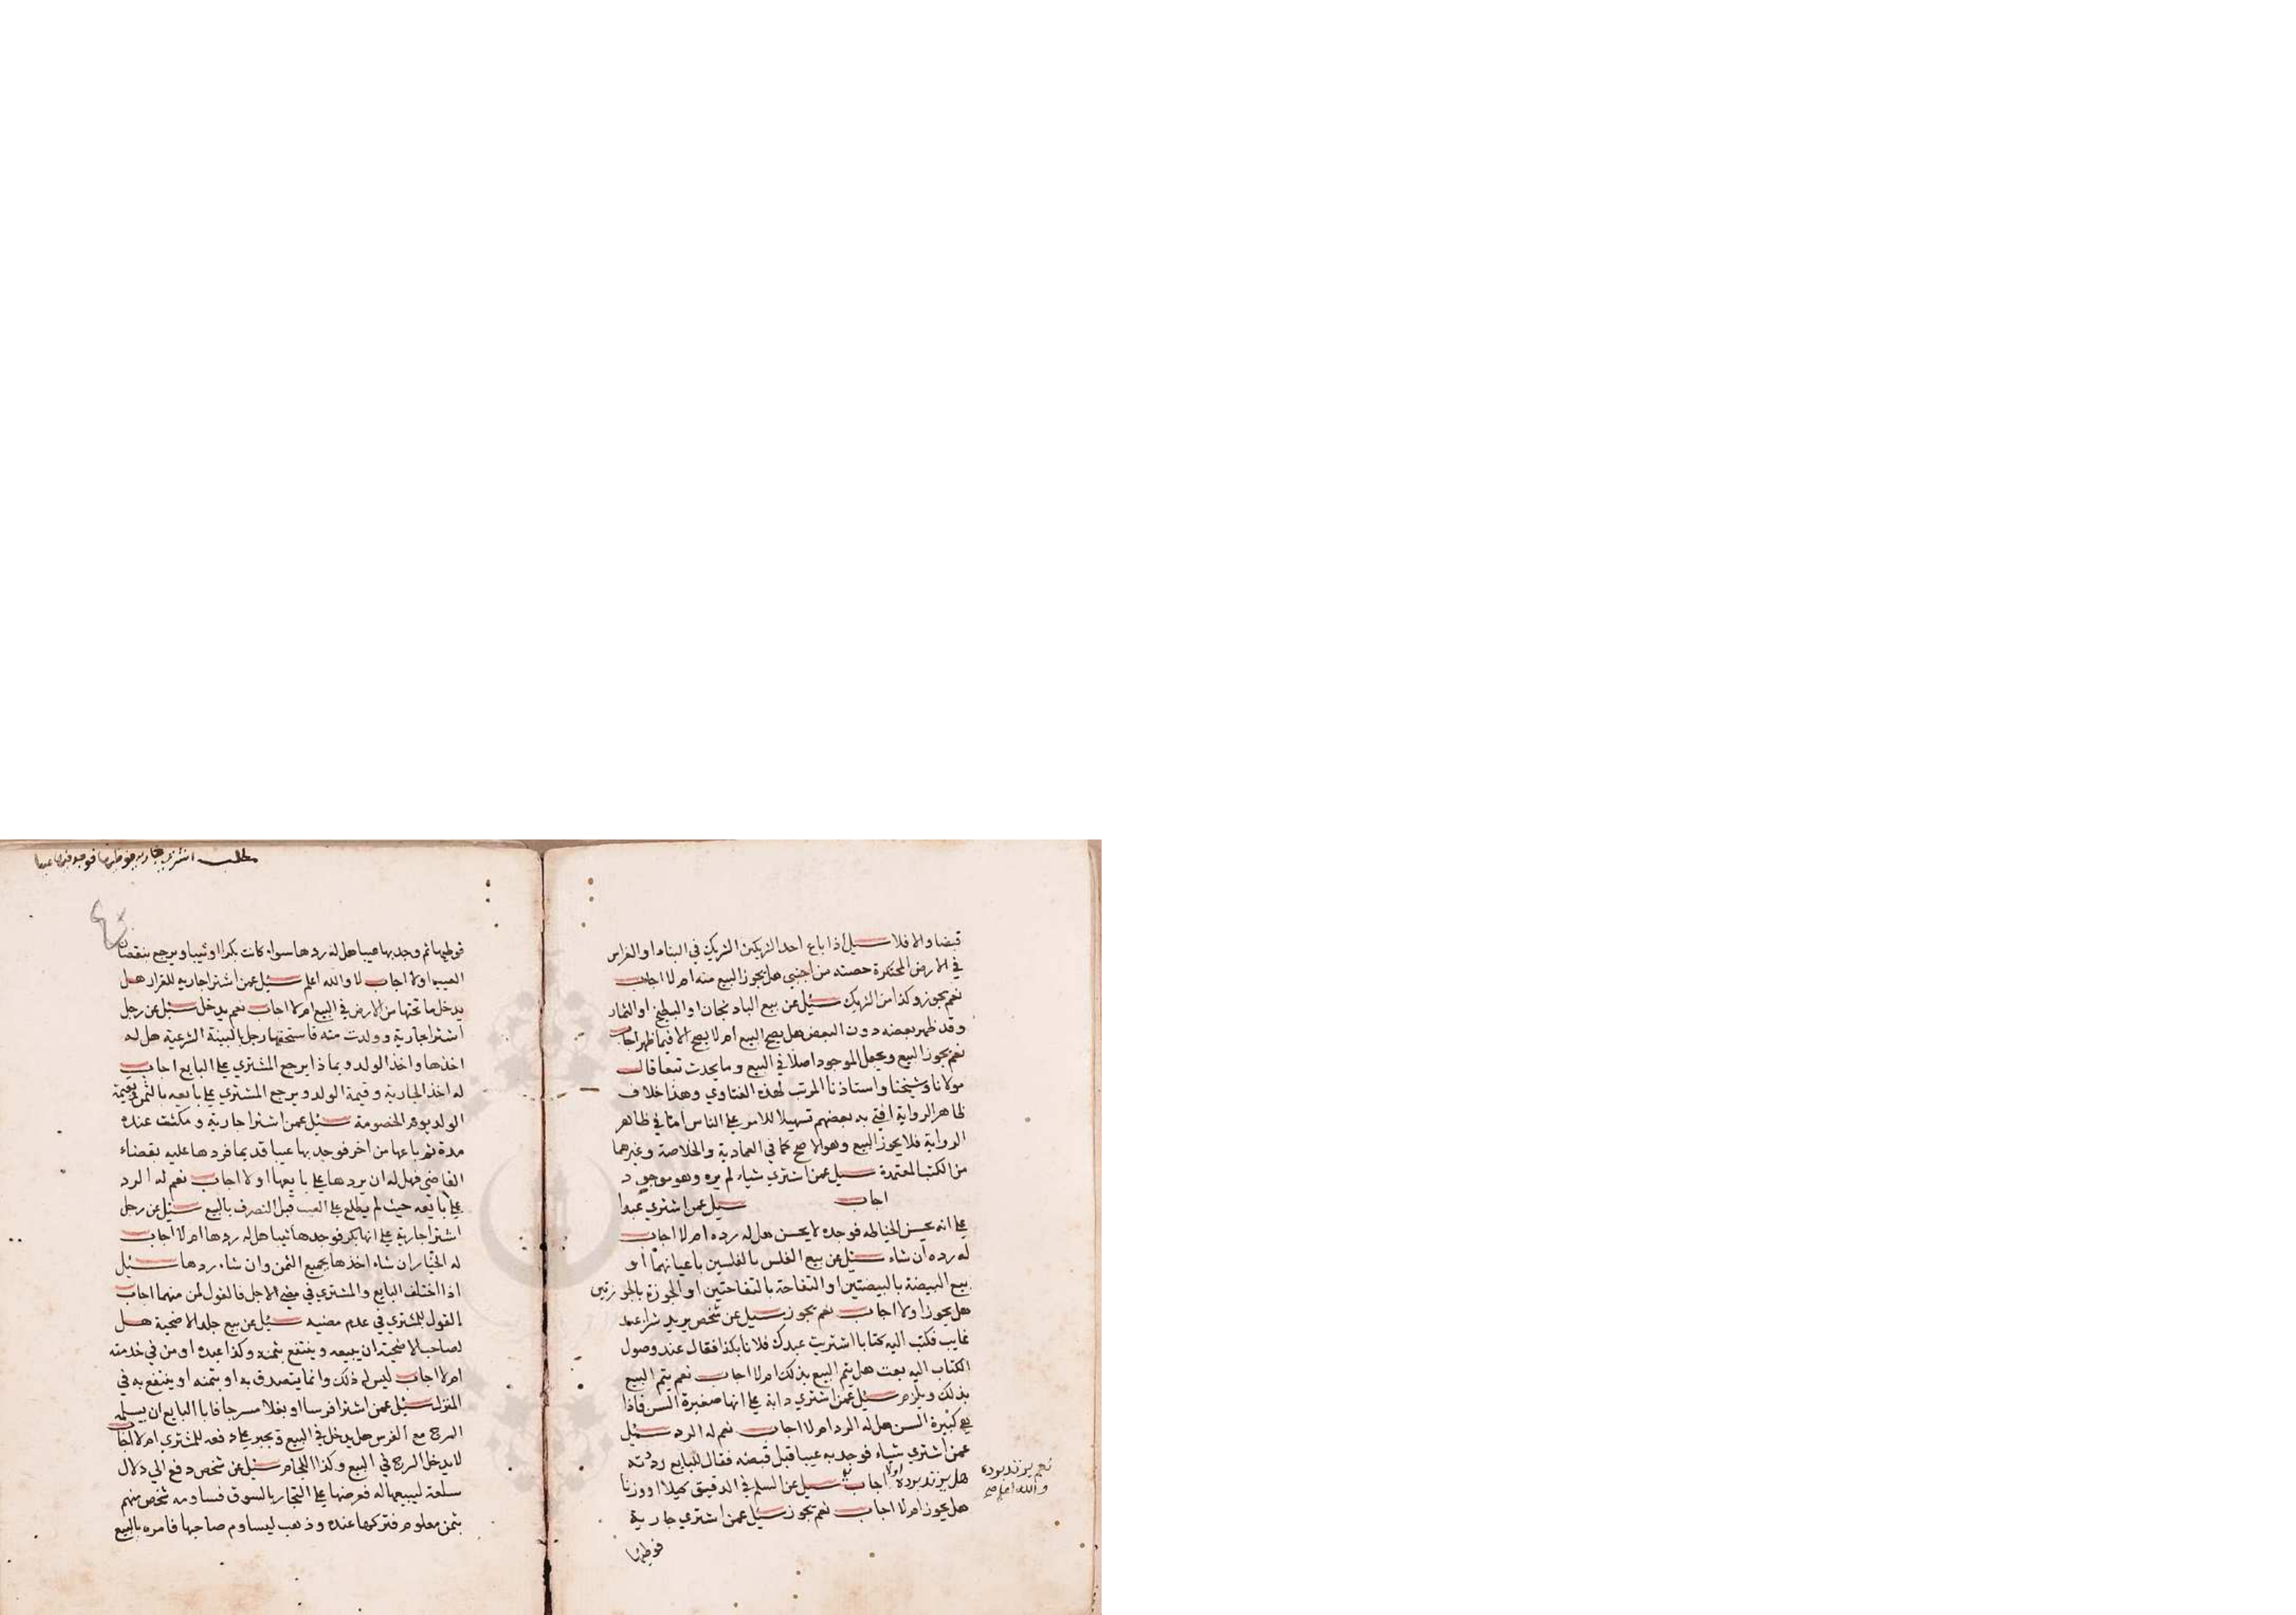 قبضا والا فلا سئل اذا باع احد الشريكين الشريك في البناء او الغراس
في الارض المحتكرة حصته من اجنبي هل يجوز البيع منه ام لا اجاب
نعم يجوز وكذا من الشريك سئل عن بيع الباذنجان او البطيخ او الثمار
وقد ظهر بعضه دون البعض هل يصح البيع ام لا يصح الا فيما ظهر اجاب
نعم يجوز البيع ويجعل الموجود اصلا في البيع وما يحدث تبعا قال
مولانا وشيخنا واستاذنا المرتب لهذه الفتاوي وهذا خلاف
ظاهر الرواية افتى به بعضهم تسهيلا للامر على الناس اما في ظاهر
الرواية فلا يجوز البيع وهو الاصح كما في العمادية والخلاصة وغيرهما
من الكتب المعتمدة سيل عمن اشتري شياء لم يره وهو موجود
اجاب سيل عمن اشتري عبدا
على انه يحسن الخياطه فوجده لا يحسن هل له رده ام لا اجاب
له رده ان شاء سئل عن بيع الفلس بالفلسين باعيانهما او
بيع البيضة بالبيضتين او التفاحة بالتفاحتين او الجوزة بالجوزتين
هل يجوز اولا اجاب نعم يجوز سيل عن شخص يريد شرا عبد
غايب فكتب اليه كتابا اشتريت عبدك فلانا بكذا فقال عند وصول
الكتاب اليه بعت هل يتم البيع بذلك ام لا اجاب نعم يتم البيع
بذلك ويلزم سئل عمن اشتري دابة على انها صغيرة السن فاذا
هي كبيرة السن هل له الرد ام لا اجاب نعم له الرد سئل
عمن اشتري شياء فوجد به عيبا قبل قبضه فقال للبايع رددته
هل يرتد برده اولا اجاب سيل عن السلم في الدقيق كيلا او وزنا
هل يجوز ام لا اجاب نعم يجوز سئل عمن اشتري جارية
فوطيها
نعم يرتد برده
والله اعلم صح
مطلب اشتري جارية فوطيها فوجد فيها عيبا
فوطيها ثم وجد بها عيبا هل له ردها سواء كانت بكرا او ثيبا ويرجع بنقصان
العيب اولا اجاب لا والله اعلم سئل عمن اشترا جارية للقرار هل
يدخل ما تحتها من الارض في البيع ام لا اجاب نعم يدخل سئل عن رجل
اشترا جارية وولدت منه فاستحقها رجل بالبينة الشرعية هل له
اخذها واخذ الولد وبماذا يرجع المشتري على البايع اجاب
له اخذ الجارية وقيمة الولد ويرجع المشتري على بايعه بالثمن وبقيمة
الولد يوم الخصومة سئل عمن اشترا جارية ومكثت عنده
مدة ثم باعها من اخر فوجد بها عيبا قديما فردها عليه بقضاء
القاضي فهل له ان يردها على بايعها اولا اجاب نعم له الرد
على بايعه حيث لم يطلع على العيب قبل التصرف بالبيع سئل عن رجل
اشترا جارية على انها بكر فوجدها ثيبا هل له ردها ام لا اجاب
له الخيار ان شاء اخذها بجميع الثمن وان شاء ردها سئل
اذا اختلف البايع والمشتري في مضي الاجل فالقول لمن منهما اجاب
القول للمشتري في عدم مضيه سئل عن بيع جلد الاضحية هل
لصاحب الاضحية ان يبيعه وينتفع بثمنه وكذا عبده او من في خدمته
ام لا اجاب ليس له ذلك وانما يتصدق به او بثمنه او ينتفع به في
المنزل سئل عمن اشترا فرسا او بغلا مسرجا فابا البايع ان يسلمه
السرج مع الفرس هل يدخل في البيع ويجبر على دفعه للمشتري ام لا اجاب
لا يدخل السرج في البيع وكذا اللجام سئل عن شخص دفع الي دلال
سلعة ليبيعها له فعرضها على التجار بالسوق فساومه شخص منهم
بثمن معلوم فتركها عنده وذهب ليساوم صاحبها فامره بالبيع